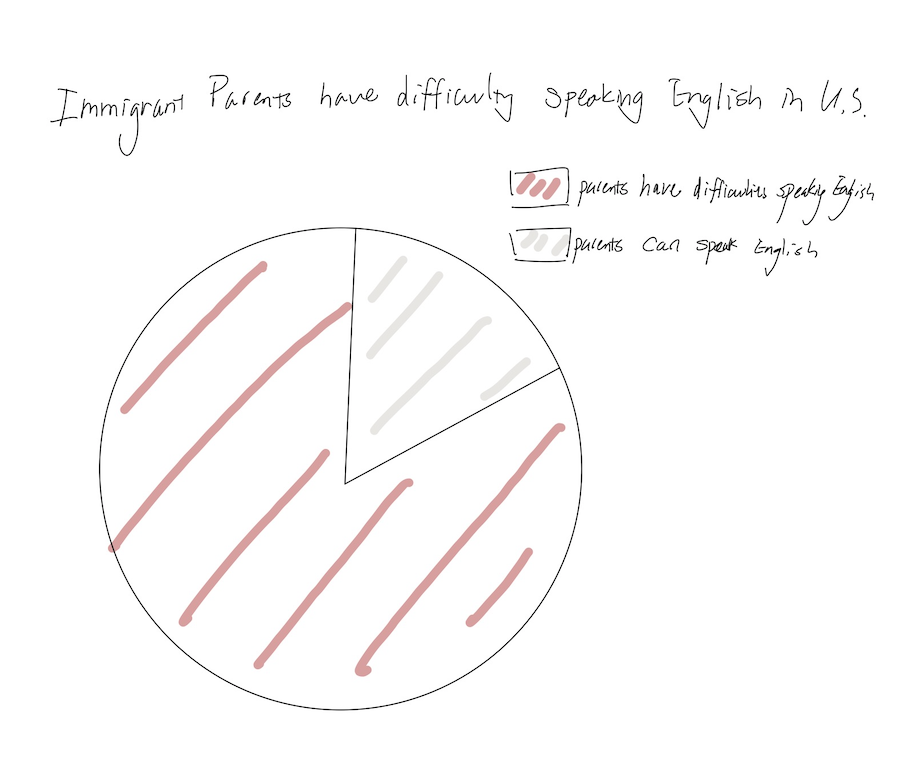 Immigrant Parents have difficulty speaking English in U.S.
parents have difficulties speaking English
parents can speak English